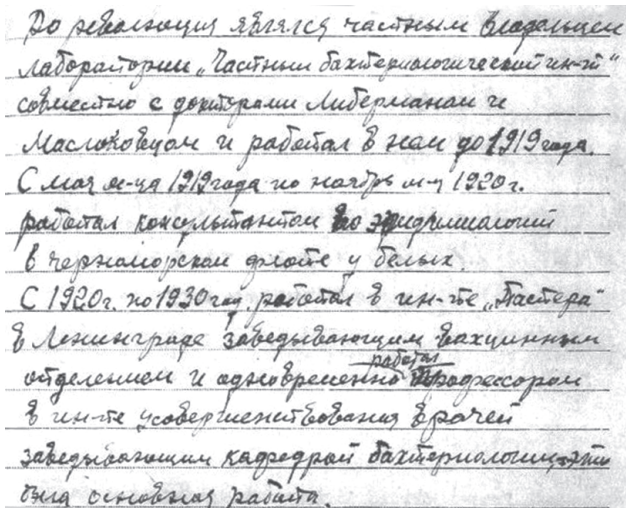 До революции являлся частным владельцем
лаборатории „Частный бактериологический ин-т“
совместно с докторами Либерманом и
Маслоковцом и работал в нем до 1919 года.
С мая м-ца 1919 года по ноябрь м-ц 1920 г.
работал консультантом по эпидемиологии
в черноморском флоте у белых.
С 1920 г. по 1930 год работал в ин-те „Пастера“
в Ленинграде заведывающим вакцинным
отделением и одновременно работал профессором
в ин-те усовершенствования врачей
заведывающим кафедрой бактериологии, это
была основная работа.